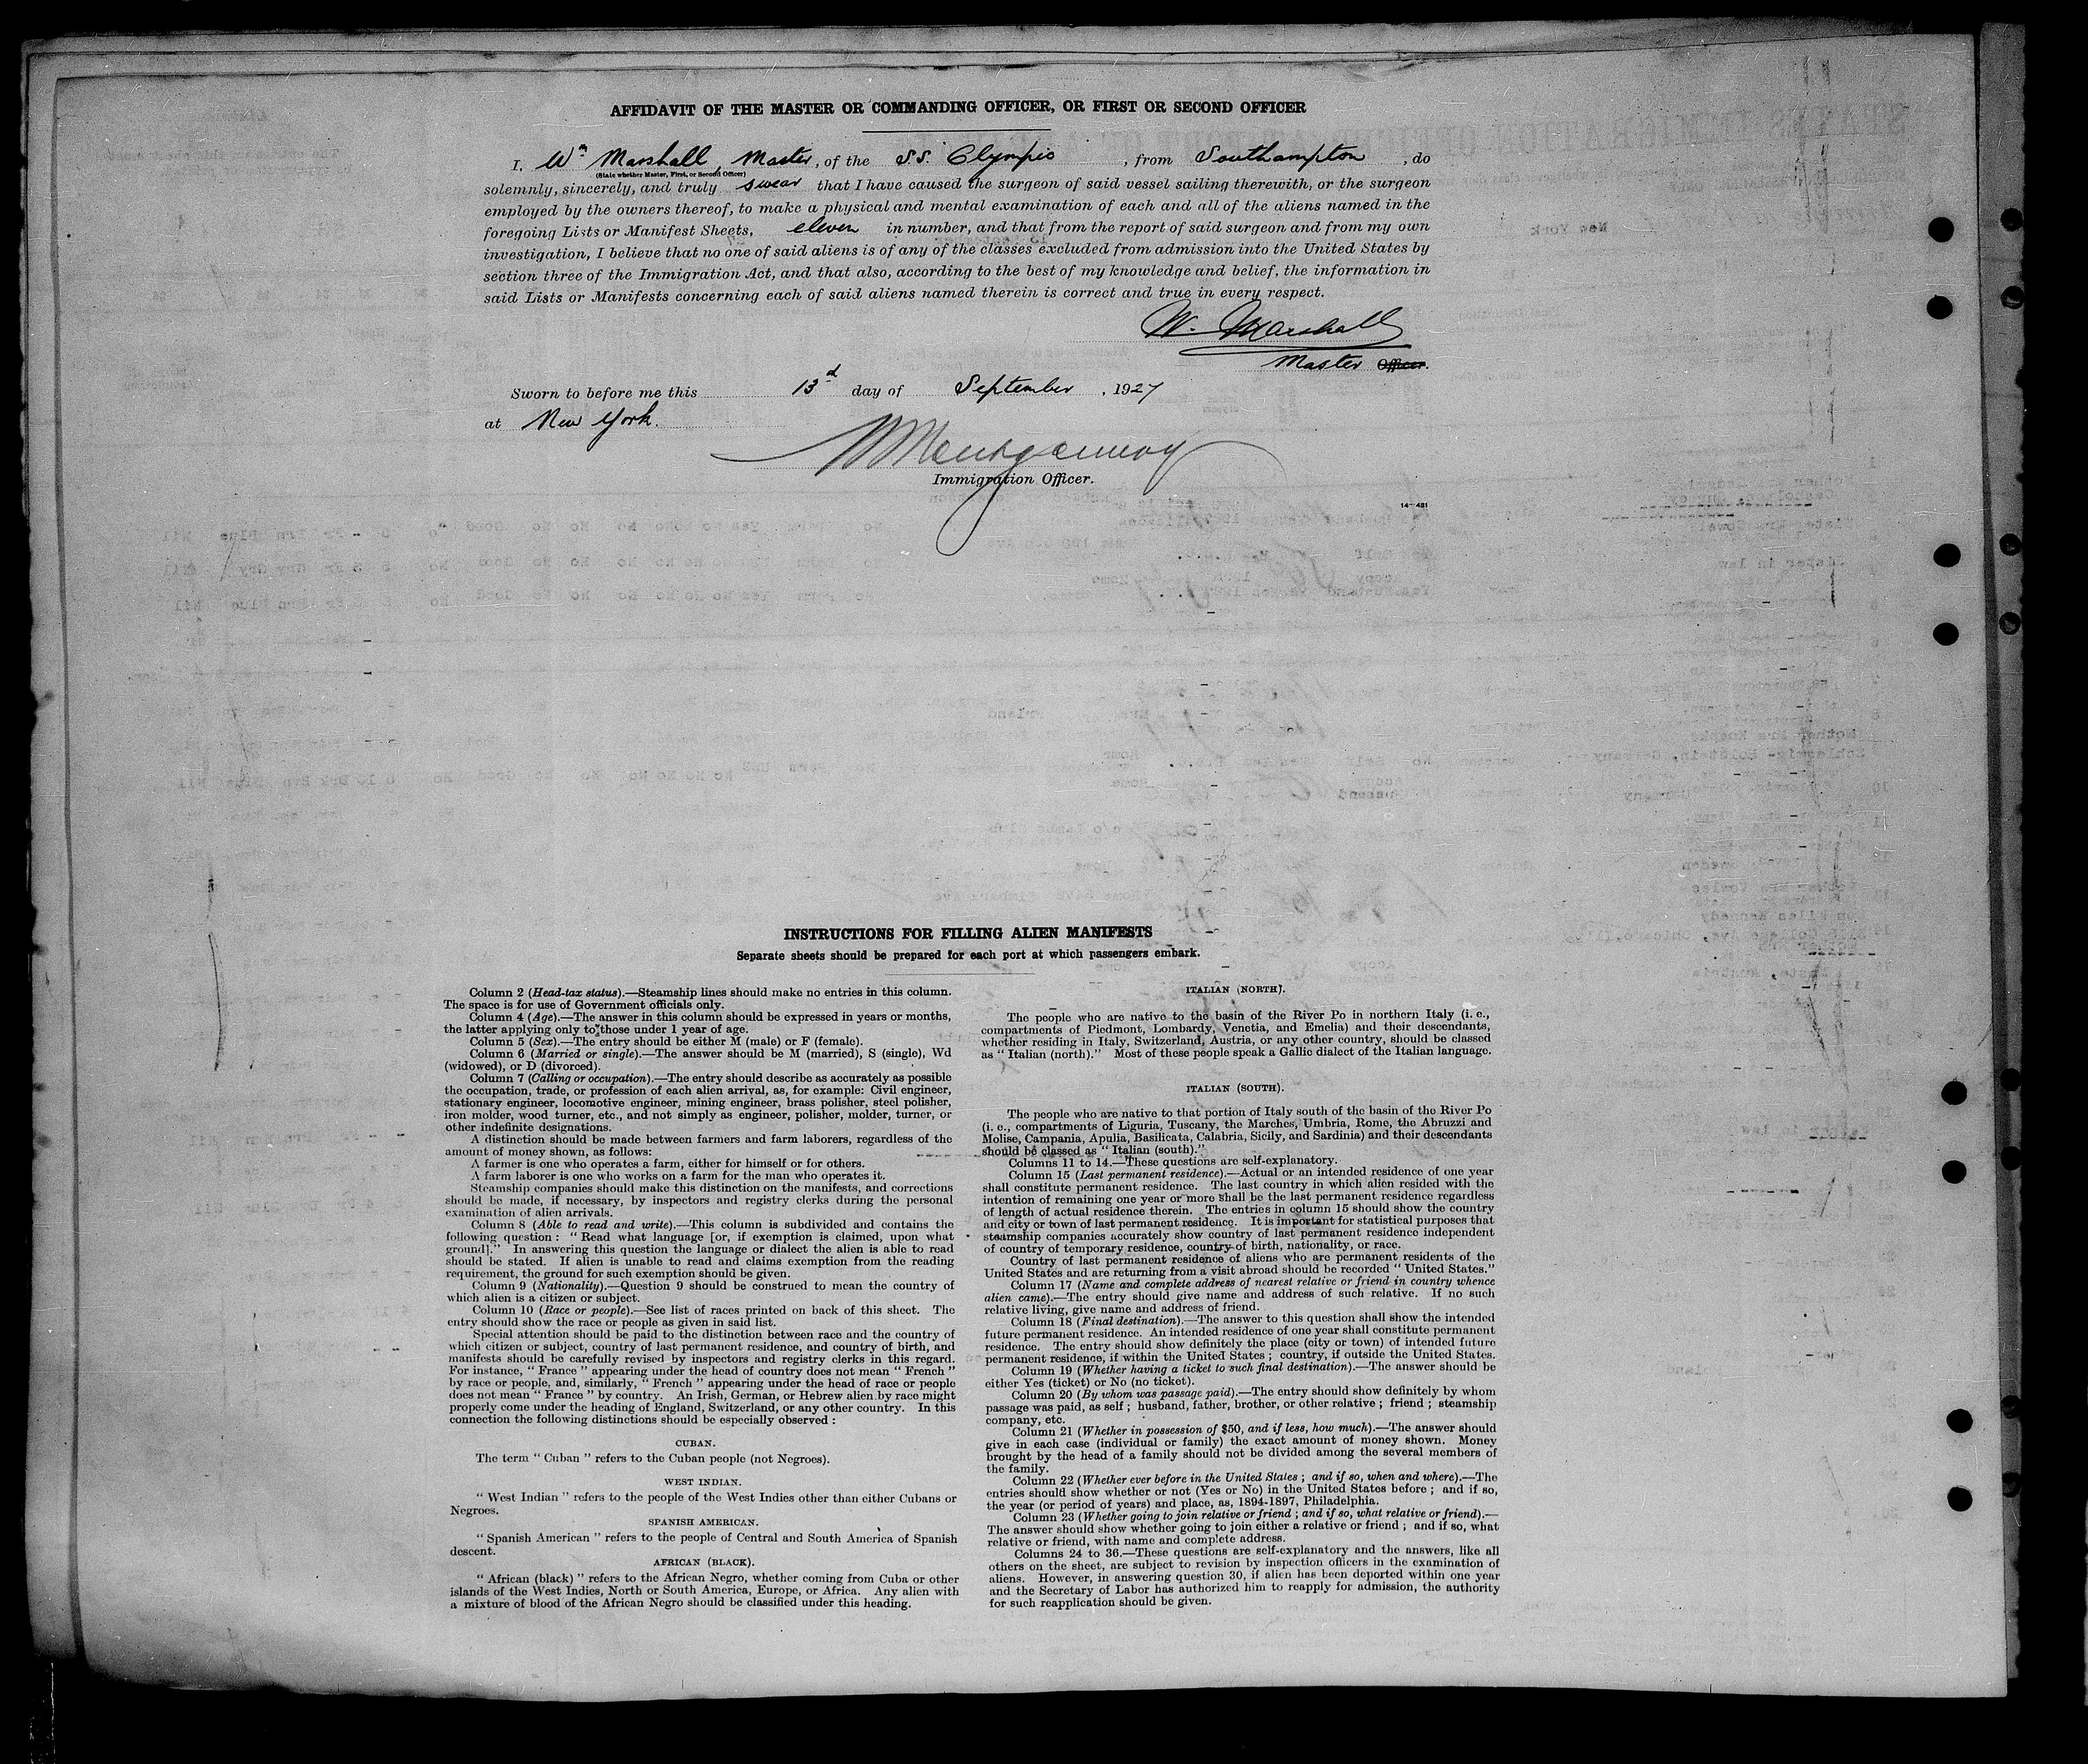 AFFIDAVIT OF THE MASTER OR COMMANDING OFFICER, OR FIRST OR SECOND OFFICER
I, Wm Marshall, Master, of the S.S. Olympic, from Southampton, do
(State whether Master, First, or Second Officer)
solemnly, sincerely, and truly swear that I have caused the surgeon of said vessel sailing therewith, or the surgeon
employed by the owners thereof, to make a physical and mental examination of each and all of the aliens named in the
foregoing Lists or Manifest Sheets, eleven in number, and that from the report of said surgeon and from my own
investigation, I believe that no one of said aliens is of any of the classes excluded from admission into the United States by
section three of the Immigration Act, and that also, according to the best of my knowledge and belief, the information in
said Lists or Manifests concerning each of said aliens named therein is correct and true in every respect.
W. Marshall
Master Officer.
Sworn to before me this 13d day of September, 1927
at New York.
Montgomery
Immigration Officer.
14-481
INSTRUCTIONS FOR FILLING ALIEN MANIFESTS
Separate sheets should be prepared for each port at which passengers embark.
Column 2 (Head-tax status).—Steamship lines should make no entries in this column.
The space is for use of Government officials only.
Column 4 (Age).—The answer in this column should be expressed in years or months,
the latter applying only to those under 1 year of age.
Column 5 (Sex).—The entry should be either M (male) or F (female).
Column 6 (Married or single).—The answer should be M (married), S (single), Wd
(widowed), or D (divorced).
Column 7 (Calling or occupation).—The entry should describe as accurately as possible
the occupation, trade, or profession of each alien arrival, as, for example: Civil engineer,
stationary engineer, locomotive engineer, mining engineer, brass polisher, steel polisher,
iron molder, wood turner, etc., and not simply as engineer, polisher, molder, turner, or
other indefinite designations.
A distinction should be made between farmers and farm laborers, regardless of the
amount of money shown, as follows:
A farmer is one who operates a farm, either for himself or for others.
A farm laborer is one who works on a farm for the man who operates it.
Steamship companies should make this distinction on the manifests, and corrections
should be made, if necessary, by inspectors and registry clerks during the personal
examination of alien arrivals.
Column 8 (Able to read and write).—This column is subdivided and contains the
following question: "Read what language [or, if exemption is claimed, upon what
ground]." In answering this question the language or dialect the alien is able to read
should be stated. If alien is unable to read and claims exemption from the reading
requirement, the ground for such exemption should be given.
Column 9 (Nationality).—Question 9 should be construed to mean the country of
which alien is a citizen or subject.
Column 10 (Race or people).—See list of races printed on back of this sheet. The
entry should show the race or people as given in said list.
Special attention should be paid to the distinction between race and the country of
which citizen or subject, country of last permanent residence, and country of birth, and
manifests should be carefully revised by inspectors and registry clerks in this regard.
For instance, "France" appearing under the head of country does not mean "French"
by race or people, and, similarly, "French" appearing under the head of race or people
does not mean "France" by country. An Irish, German, or Hebrew alien by race might
properly come under the heading of England, Switzerland, or any other country. In this
connection the following distinctions should be especially observed:
CUBAN.
The term "Cuban" refers to the Cuban people (not Negroes).
WEST INDIAN.
"West Indian" refers to the people of the West Indies other than either Cubans or
Negroes.
SPANISH AMERICAN.
"Spanish American" refers to the people of Central and South America of Spanish
descent.
AFRICAN (BLACK).
"African (black)" refers to the African Negro, whether coming from Cuba or other
islands of the West Indies, North or South America, Europe, or Africa. Any alien with
a mixture of blood of the African Negro should be classified under this heading.
ITALIAN (NORTH).
The people who are native to the basin of the River Po in northern Italy (i. e.,
compartments of Piedmont, Lombardy, Venetia, and Emelia) and their descendants,
whether residing in Italy, Switzerland, Austria, or any other country, should be classed
as "Italian (north)." Most of these people speak a Gallic dialect of the Italian language.
ITALIAN (SOUTH).
The people who are native to that portion of Italy south of the basin of the River Po
(i. e., compartments of Liguria, Tuscany, the Marches, Umbria, Rome, the Abruzzi and
Molise, Campania, Apulia, Basilicata, Calabria, Sicily, and Sardinia) and their descendants
should be classed as "Italian (south)."
Columns 11 to 14.—These questions are self-explanatory.
Column 15 (Last permanent residence).—Actual or an intended residence of one year
shall constitute permanent residence. The last country in which alien resided with the
intention of remaining one year or more shall be the last permanent residence regardless
of length of actual residence therein. The entries in column 15 should show the country
and city or town of last permanent residence. It is important for statistical purposes that
steamship companies accurately show country of last permanent residence independent
of country of temporary residence, country of birth, nationality, or race.
Country of last permanent residence of aliens who are permanent residents of the
United States and are returning from a visit abroad should be recorded "United States."
Column 17 (Name and complete address of nearest relative or friend in country whence
alien came).—The entry should give name and address of such relative. If no such
relative living, give name and address of friend.
Column 18 (Final destination).—The answer to this question shall show the intended
future permanent residence. An intended residence of one year shall constitute permanent
residence. The entry should show definitely the place (city or town) of intended future
permanent residence, if within the United States; country, if outside the United States.
Column 19 (Whether having a ticket to such final destination).—The answer should be
either Yes (ticket) or No (no ticket).
Column 20 (By whom was passage paid).—The entry should show definitely by whom
passage was paid, as self; husband, father, brother, or other relative; friend; steamship
company, etc.
Column 21 (Whether in possession of $50, and if less, how much).—The answer should
give in each case (individual or family) the exact amount of money shown. Money
brought by the head of a family should not be divided among the several members of
the family.
Column 22 (Whether ever before in the United States; and if so, when and where).—The
entries should show whether or not (Yes or No) in the United States before; and if so,
the year (or period of years) and place, as, 1894-1897, Philadelphia.
Column 23 (Whether going to join relative or friend; and if so, what relative or friend).—
The answer should show whether going to join either a relative or friend; and if so, what
relative or friend, with name and complete address.
Columns 24 to 36.—These questions are self-explanatory and the answers, like all
others on the sheet, are subject to revision by inspection officers in the examination of
aliens. However, in answering question 30, if alien has been deported within one year
and the Secretary of Labor has authorized him to reapply for admission, the authority
for such reapplication should be given.